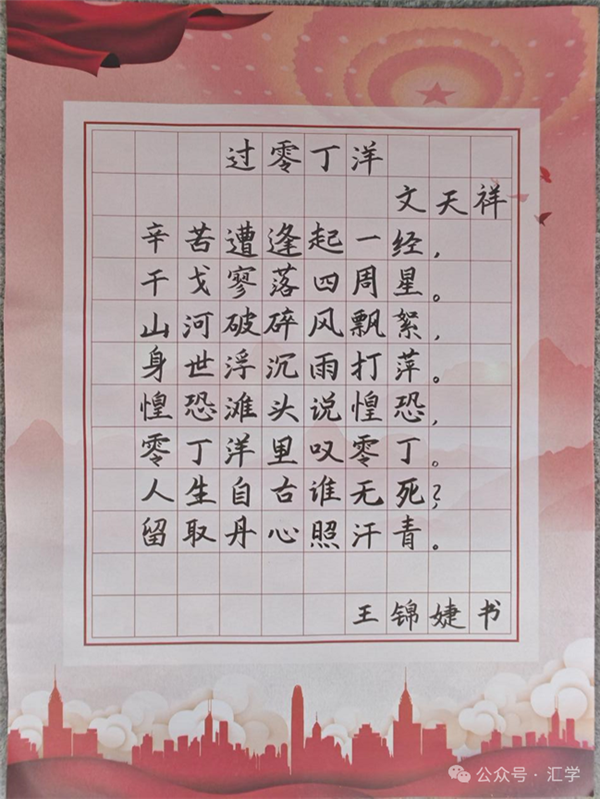 过零丁洋
文天祥
辛苦遭逢起一经，
干戈寥落四周星。
山河破碎风飘絮，
身世浮沉雨打萍。
惶恐滩头说惶恐，
零丁洋里叹零丁。
人生自古谁无死？
留取丹心照汗青。
王锦婕书
公众号·汇学